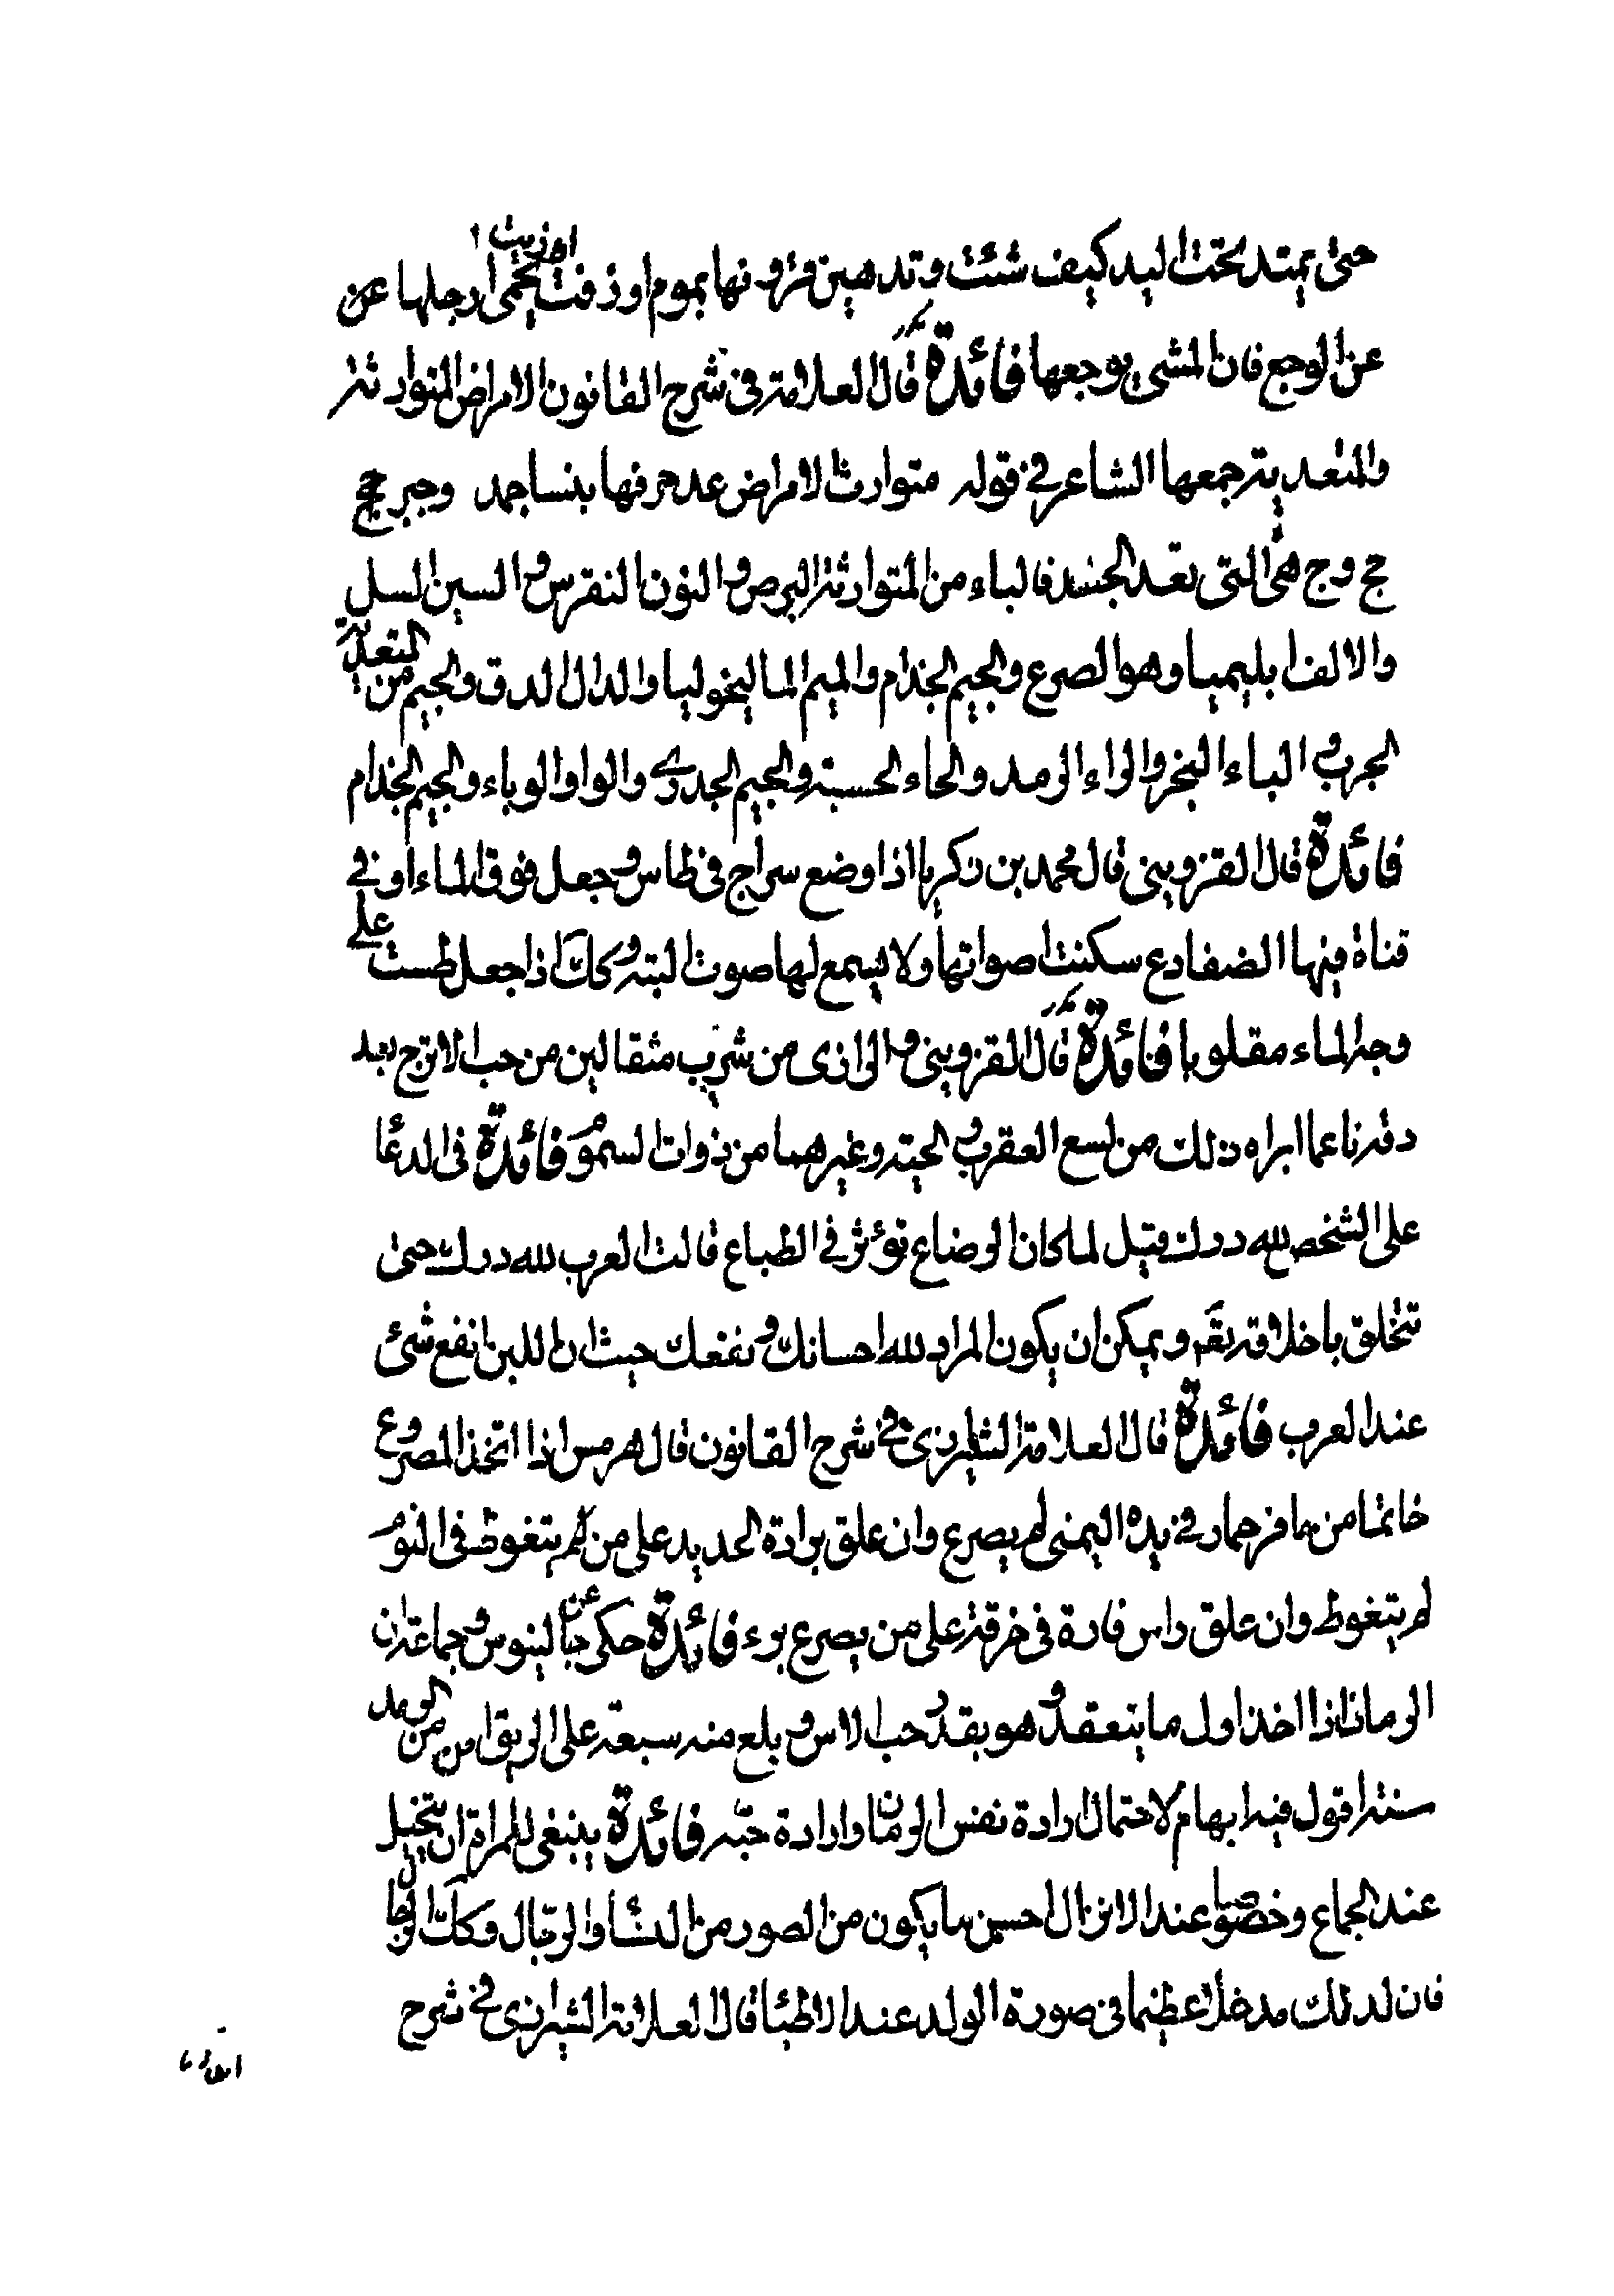 او زيت
حتى يمتد تحت اليد كيف شئت و تدهين قرونها بموم او زفت يحمى ارجلها عن
عن الوجع فان المشى يوجعها فائدة قال العلامة فى شرح القانون الامراض المتوارثة
والمتعدية جمعها الشاعر فى قوله متوارث الامراض عد حرفها بنساجمد وجبر حج
حج وج هى التى تعد الجسد فالباء من المتوارثة البرص و النون النقرس و السين السل
والالف ابليميا وهو الصرع والجيم الجذام والميم الماليخوليا والدال الدق والجيم من المتعدية
الجرب و الباء البخر والراء الرمد والحاء الحسبة والجيم الجدرى والواو الوباء والجيم الجذام
فائدة قال القزوينى قال محمد بن زكريا اذا وضع سراج فى طاس و جعل فوق الماء او فى
قناة فيها الضفادع سكنت اصواتها ولا يسمع لها صوت البتة وكك اذا جعل طست على
وجه الماء مقلوبا فائدة قال القزوينى و الرازى من شرب مثقالين من حب الاترج بعد
دقه ناعما ابراه ذلك من لسع العقرب و الحية وغيرهما من ذوات السموم فائدة فى الدعا
على الشخص لله درك قيل لما كان الرضاع تؤثر فى الطباع قالت العرب لله درك حتى
تتخلق باخلاقه تعم ويمكن ان يكون المراد لله احسانك و نفعك حيث ان اللبن انفع شئ
عند العرب فائدة قال العلامة الشيرازى فى شرح القانون قال هرمس اذا اتخذ المصروع
خاتما من حافر حمار فى يده اليمنى لم يصرع وان علق برادة الحديد على من لم يتغوط فى النوم
لم يتغوط وان علق راس فارة فى خرقة على من يصرع برء فائدة حكى عن جالينوس و جماعة ان
الرمان اذا اخذ اول ما يتعقد و هو بقدر حب الاس و بلع منه سبعة على الريق امن من الرمد
سنة اقول فيه ابهام لاحتمال ارادة نفس الرمان و ارادة حبه فائدة ينبغى للمراة ان يتخيل
عند الجماع وخصوصا عند الانزال احسن ما يكون من الصور من النساء والرجال وكك الرجال
فان لذلك مدخلا عظيما فى صورة الولد عند الاطباء قال العلامة الشيرازى فى شرح